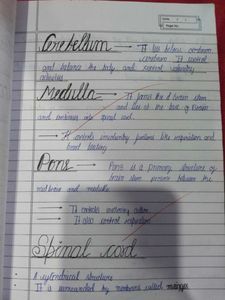 Date
Page No.
Cerebellum
→ It lies below cerebrum
cerebrum It control
and balance the body and control voluntary
activities
Medulla
→ It forms the of brain stem
and lies at the base of brain
and continues into spinal cord.
→ It controls involuntry functions like respiration and
blood
Pons
→ Pons is a primary structure of
brain stem present between the
mid brain and medulla.
→ It controls
→ It also control respiration
Spinal cord
A cylindrical structure
It is surrounded by membrane called